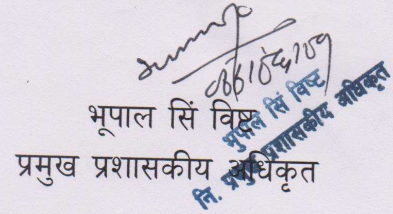 भूपाल सिं विष्ट
प्रमुख प्रशासकीय अधिकृत
भुपाल सिं विष्ट
नि. प्रमुख प्रशासकीय अधिकृत